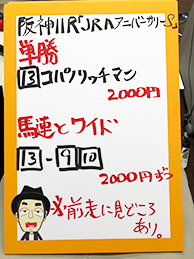 阪神11R「JRAアニバーサリーS」
単勝
13コパノリッチマン
2000円
馬連とワイド
13-9 10
2000円ずつ
※前走に見どころ
あり。